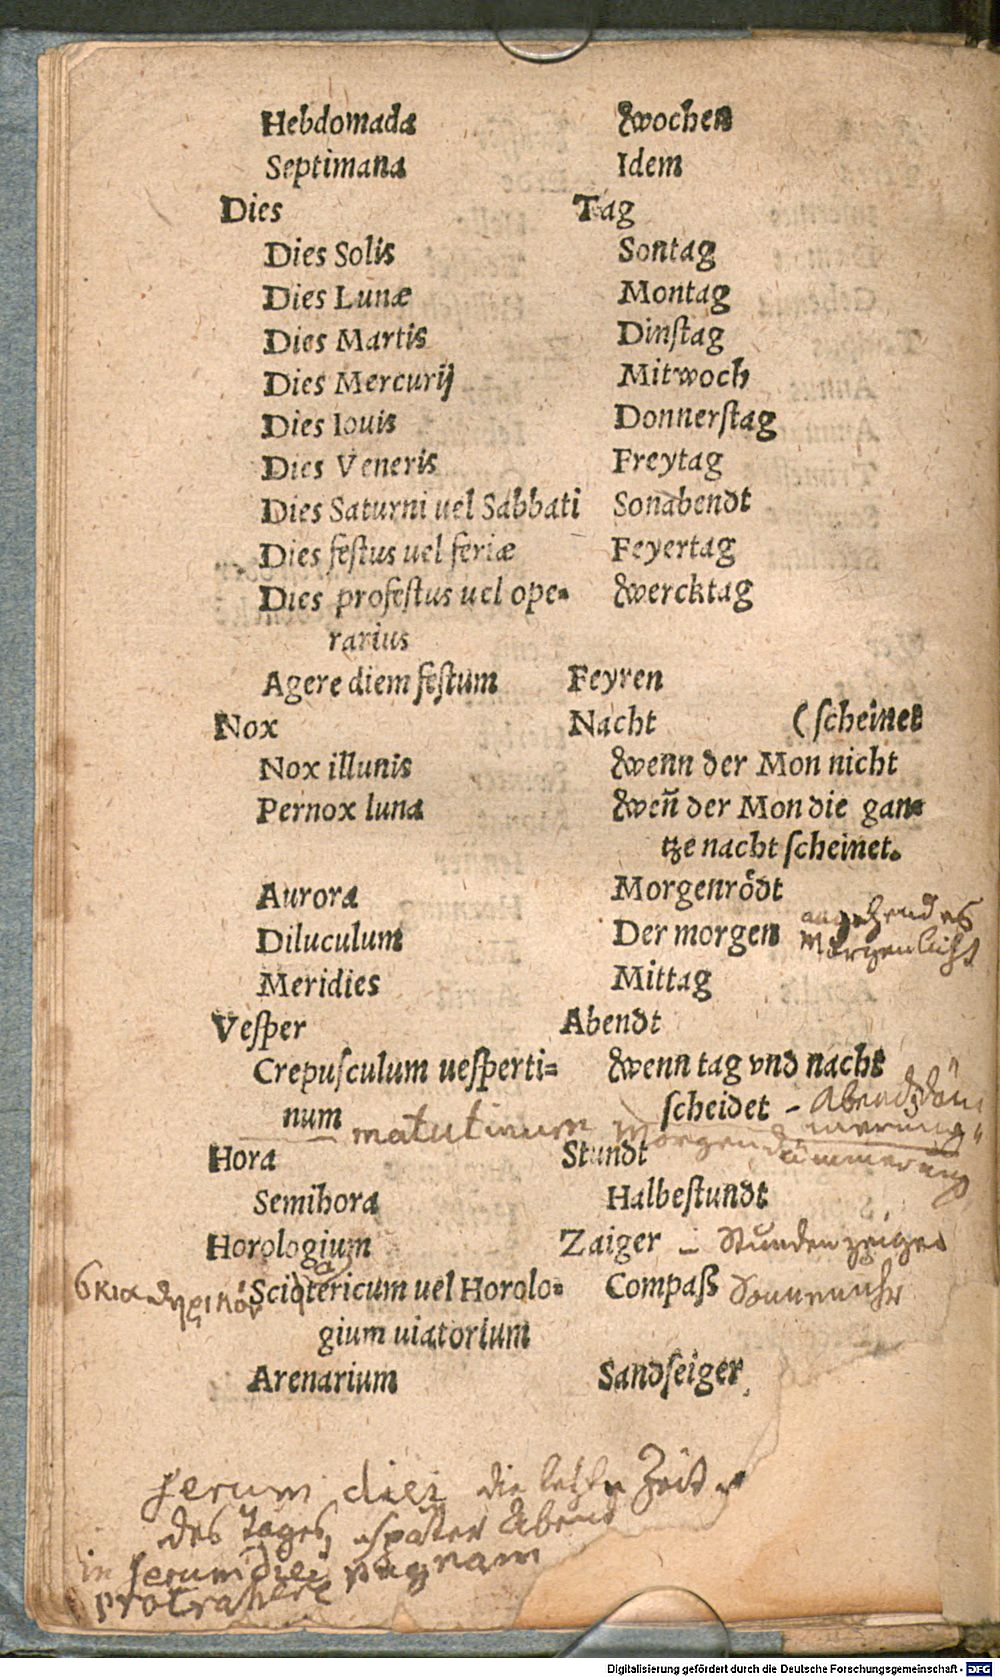 Hebdomada Wochen
Septimana Idem
Dies Tag
Dies Solis Sontag
Dies Lunæ Montag
Dies Martis Dinſtag
Dies Mercurij Mitwoch
Dies Iouis Donnerſtag
Dies Veneris Freytag
Dies Saturni uel Sabbati Sonabendt
Dies feſtus uel feriæ Feyertag
Dies profeſtus uel ope- Wercktag
rarius
Agere diem feſtum Feyren
Nox Nacht (ſcheinet
Nox illunis Wenn der Mon nicht
Pernox luna Weñ der Mon die gan-
tze nacht ſcheinet.
Aurora Morgenrödt
Diluculum Der morgen angehendes
Morgenlicht
Meridies Mittag
Veſper Abendt
Crepuſculum ueſperti= Wenn tag vnd nacht
num ſcheidet - Abenddäm
merung
matutinum Morgendämmerung
Hora Stundt
Semihora Halbeſtundt
Horologium Zaiger - Stundenzeiger
σκιαθηρικὸν Sciotericum uel Horolo= Compaß Sonnenuhr
a
gium uiatorium
Arenarium Sandſeiger
serum diei die letzte Zeit
des Tages, später Abend
in serum diei pugnam
protrahere
Digitalisierung gefördert durch die Deutsche Forschungsgemeinschaft - DFG